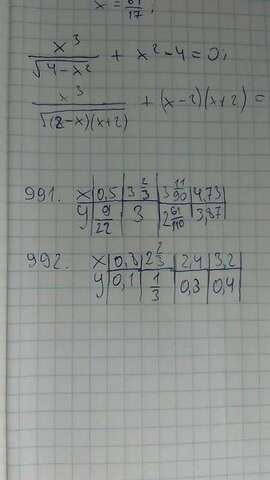 x = 61/17
x³/√(4-x²) + x²-4=0;
x³/√((2-x)(x+2)) + (x-2)(x+2) =
991. x | 0,5 | 3 2/3 | 3 11/90 | 4,73
y | 9/22 | 3 | 2 61/110 | 3,87
992. x | 0,3 | 2 2/3 | 2,4 | 3,2
y | 0,1 | 1/3 | 0,3 | 0,4